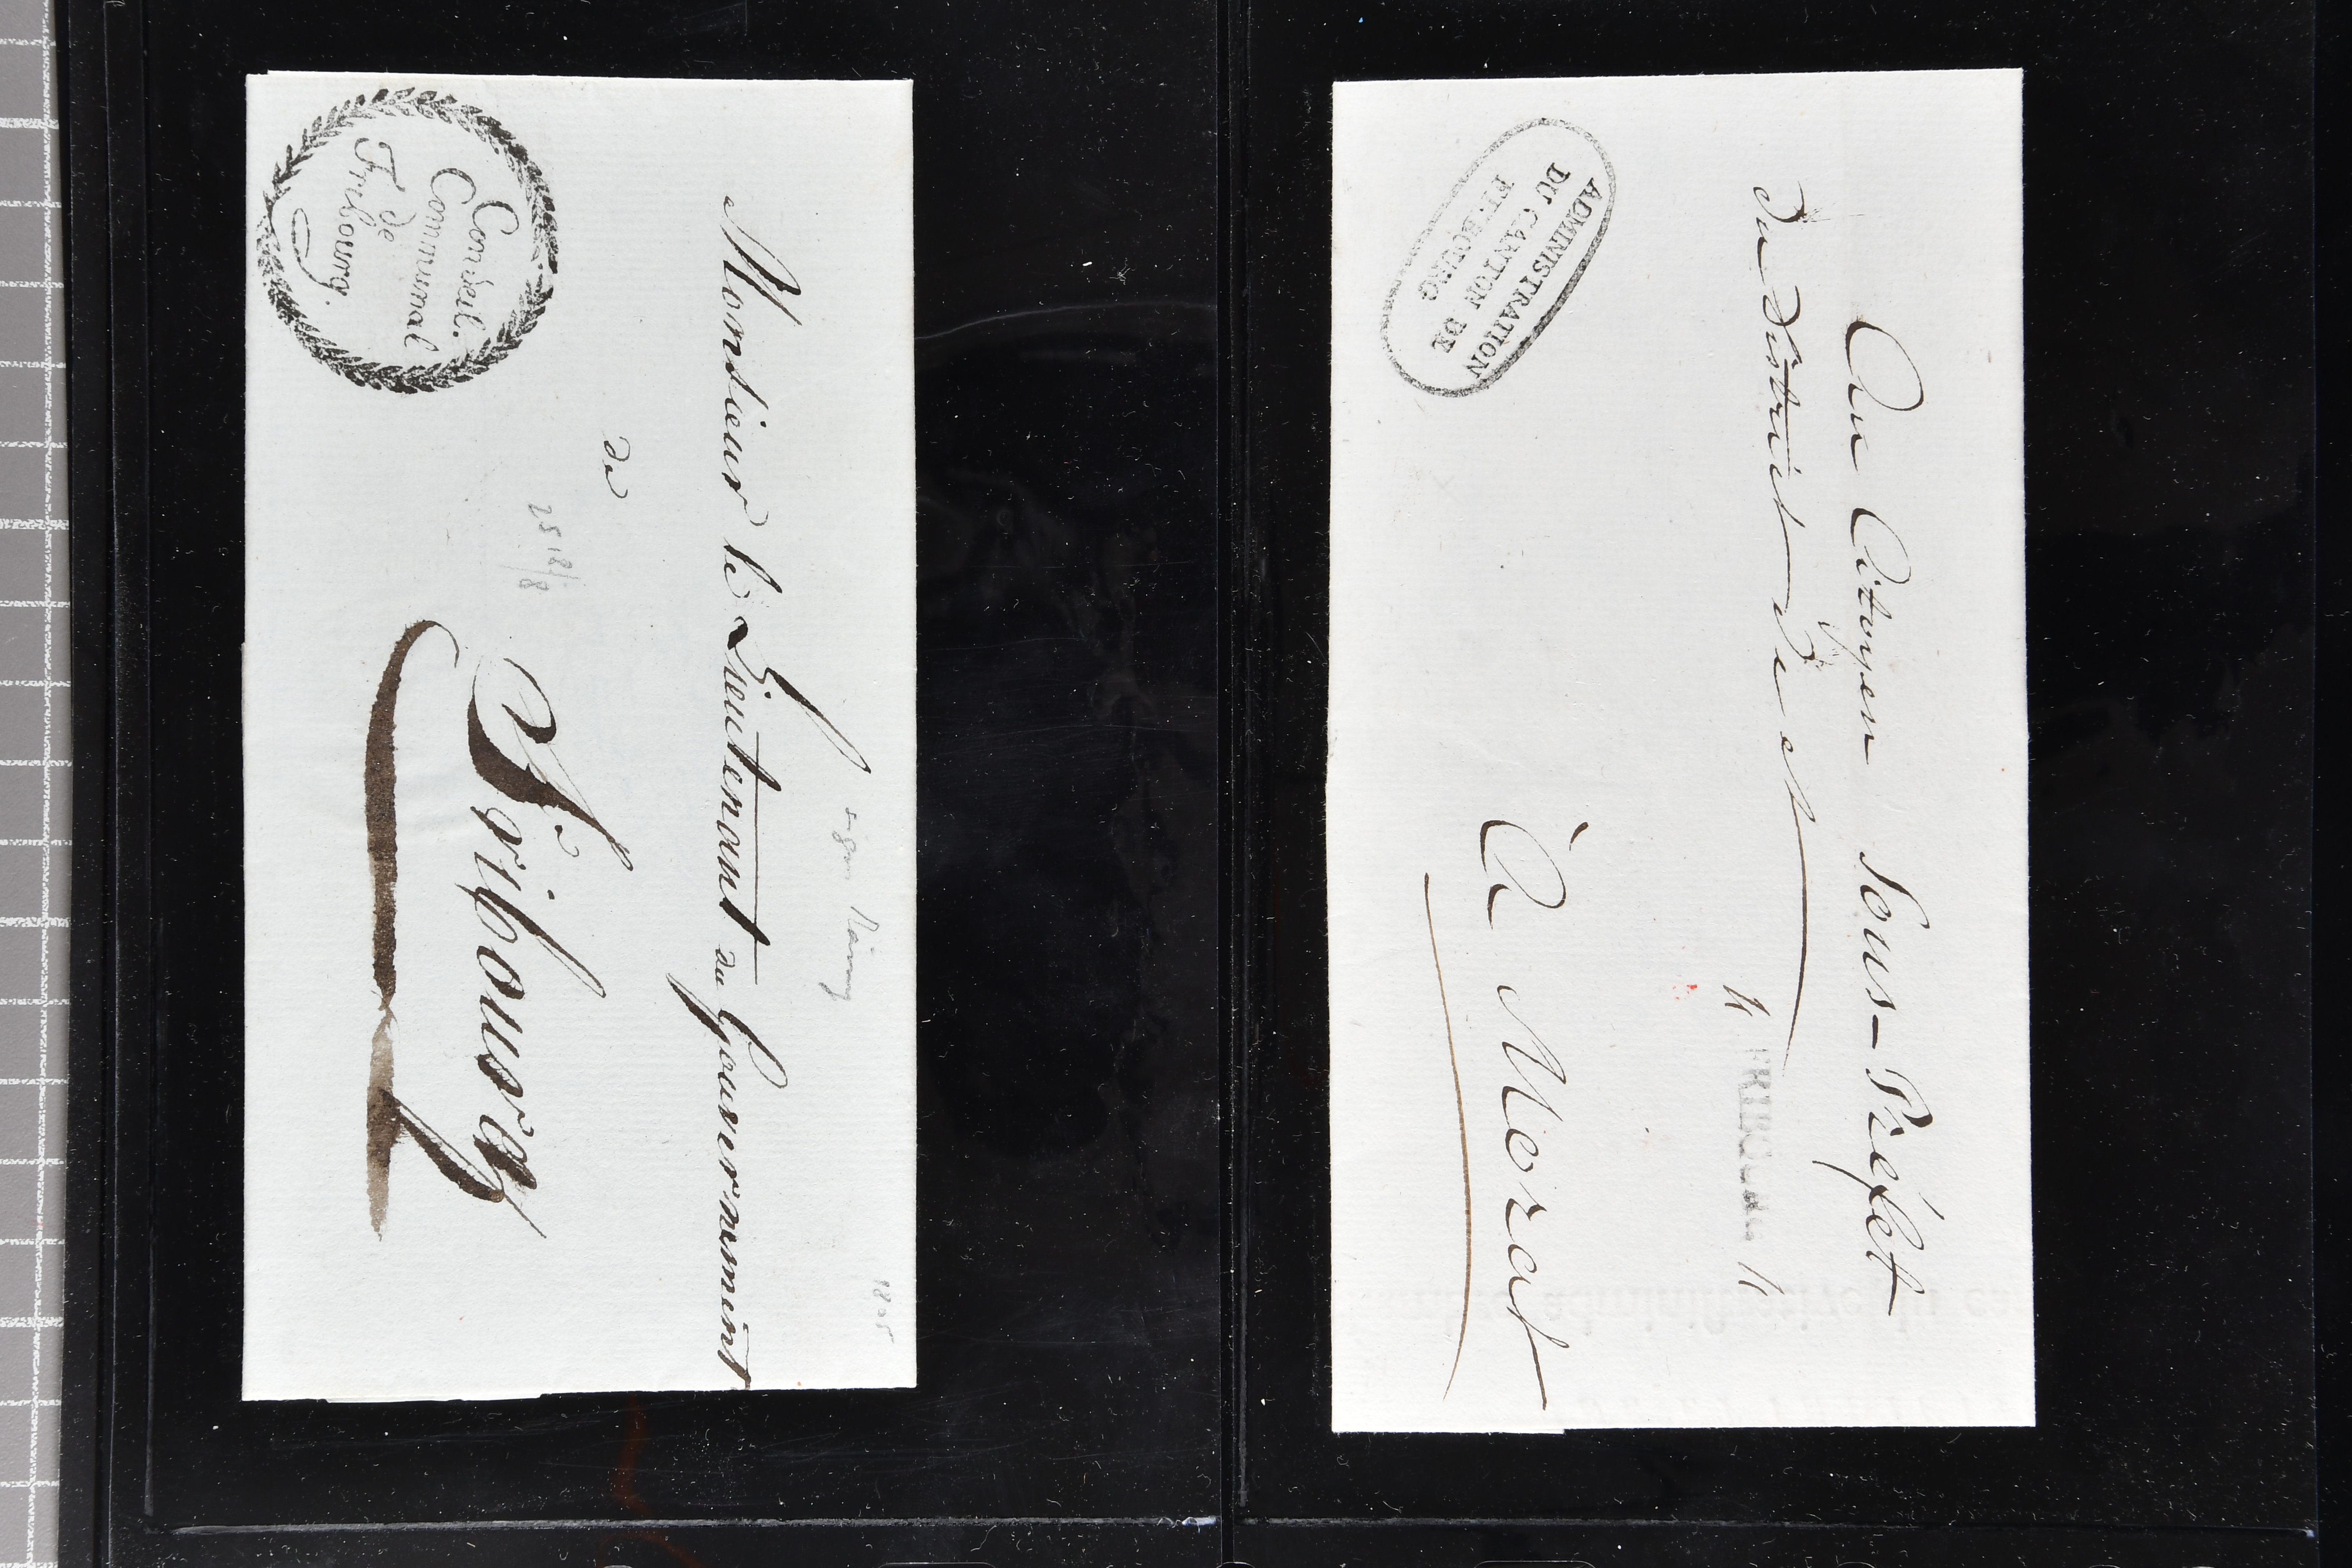 Conseil.
Communal
de
Fribourg.
1805
Monsieur le Lieutenant du Gouvernement
de
2518/8
Fribourg
ADMINISTRATION
DU CANTON DE
FRIBOURG
Au Citoyen Sous-Préfet
du district de et
À Morat